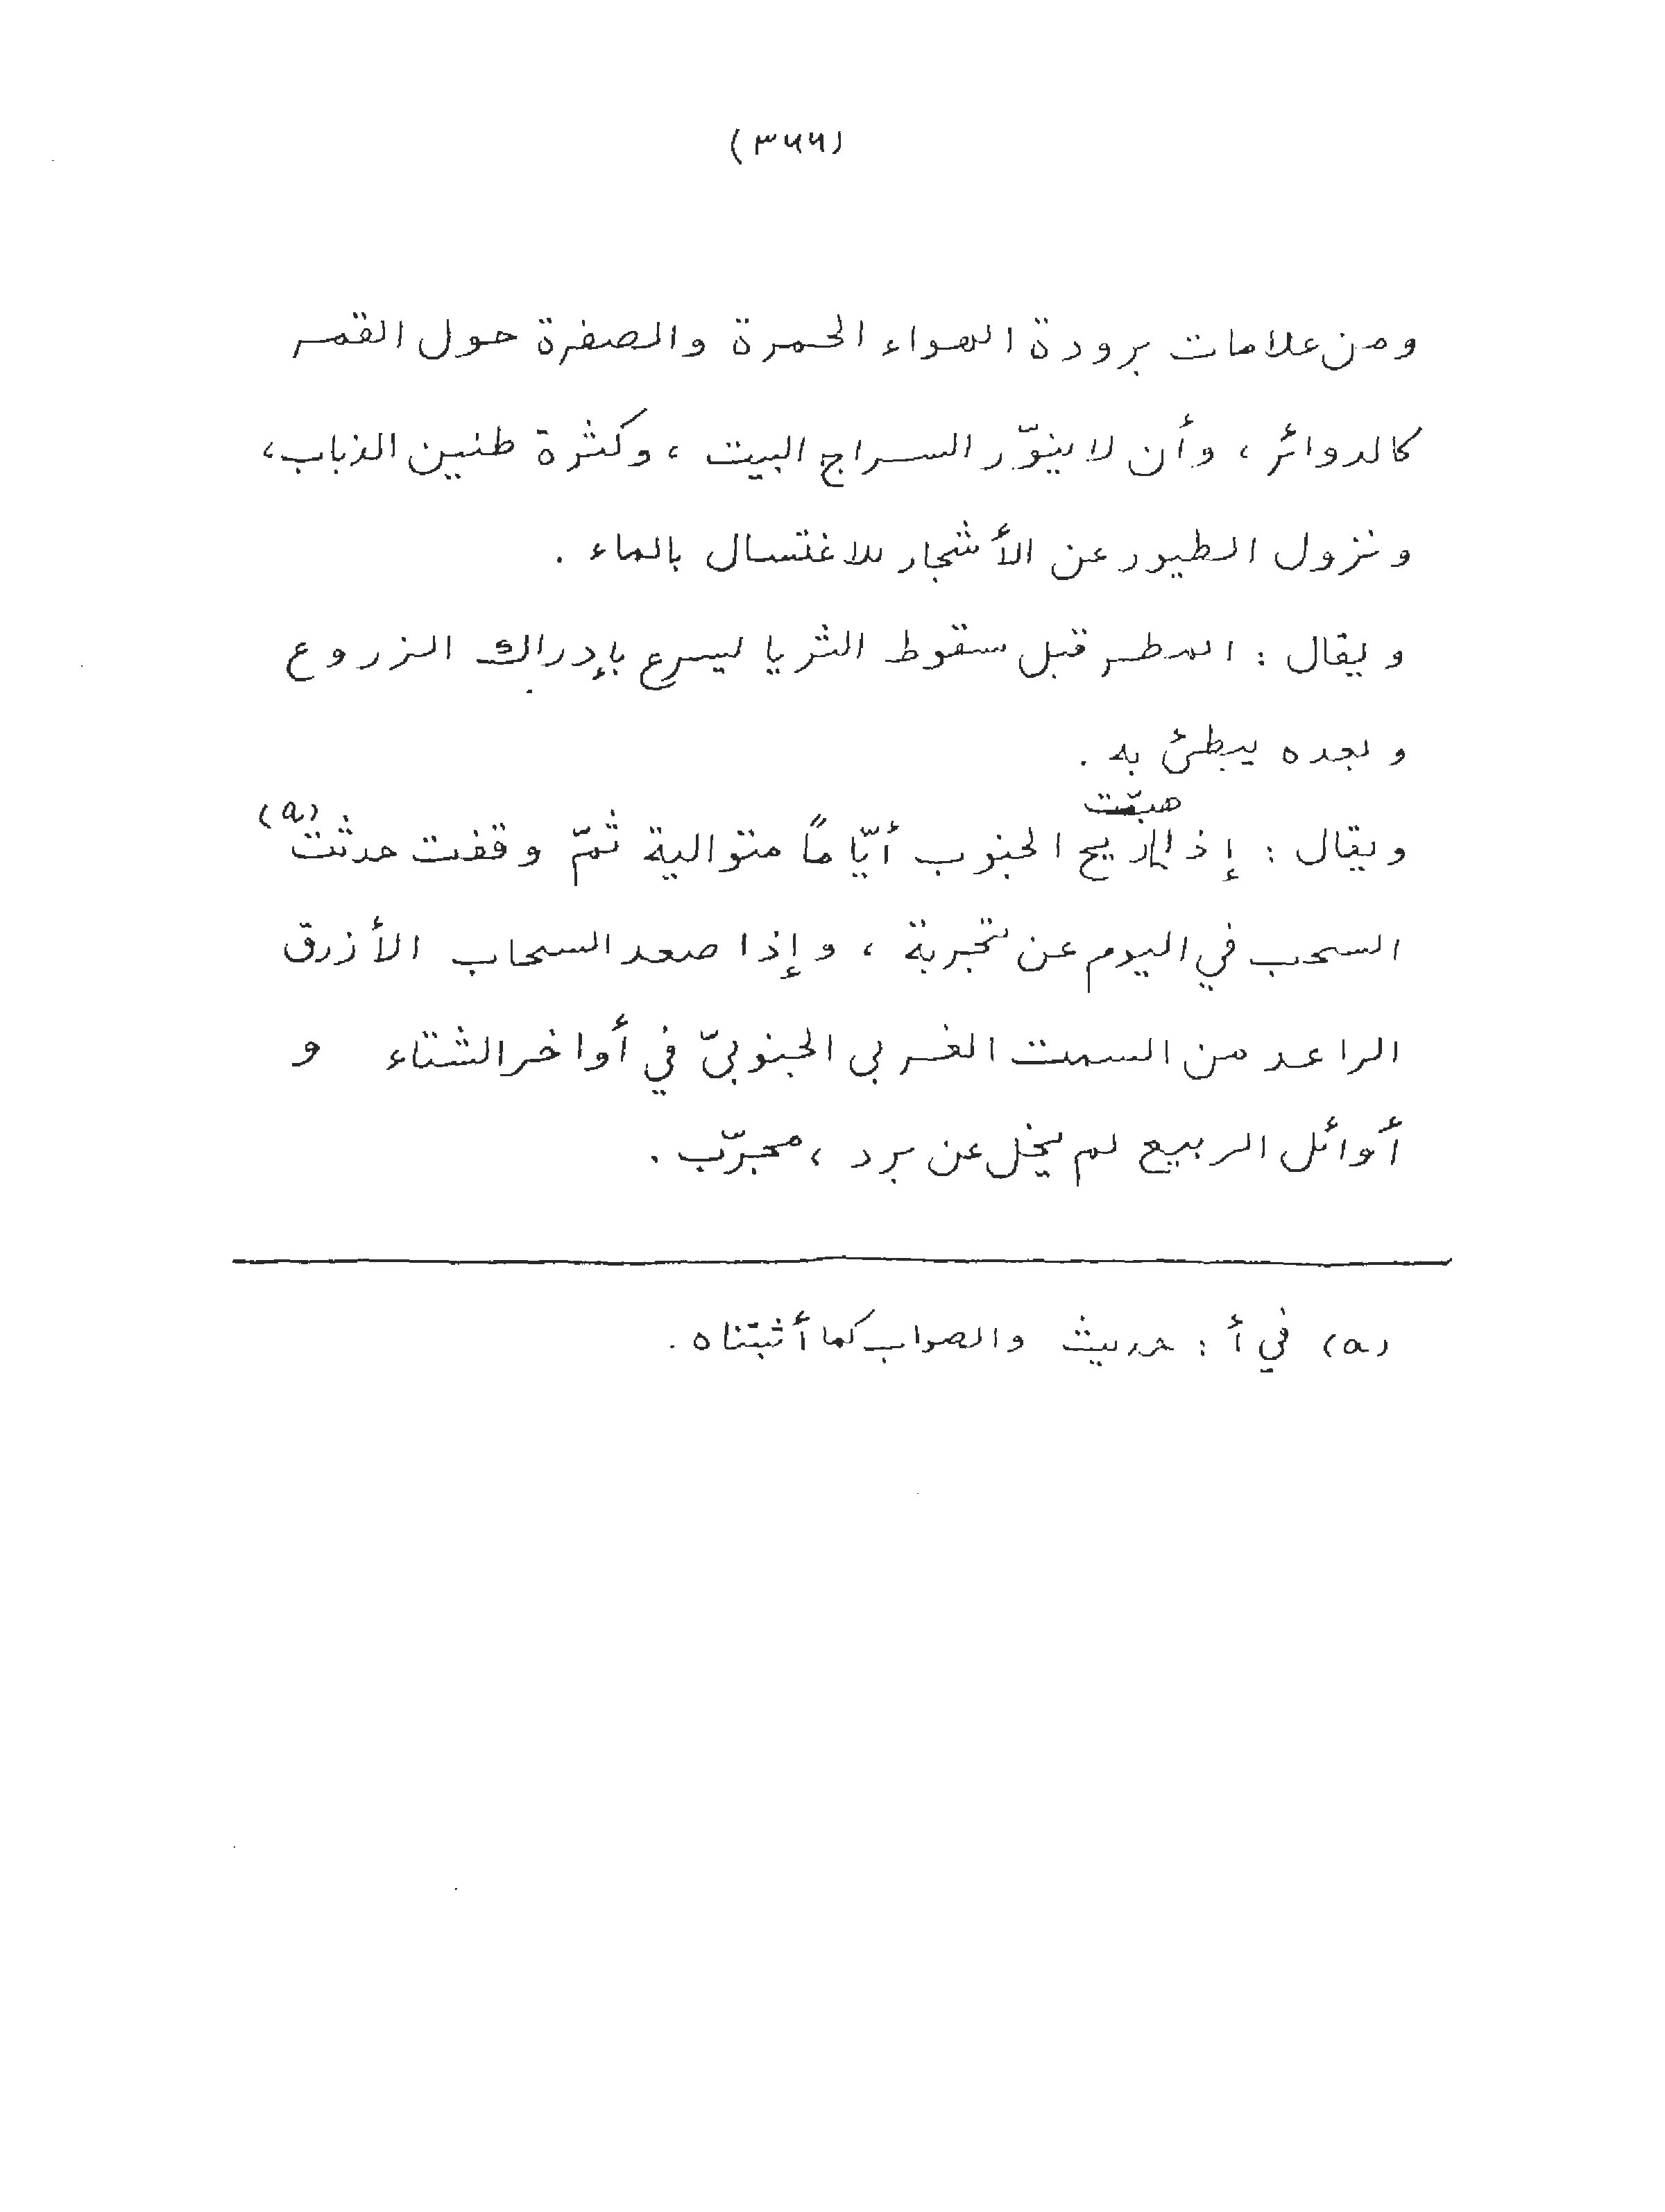 (٣٦٦)
ومن علامات برودة الهواء الحمرة والصفرة حول القمر
كالدوائر ، وأن لا ينوّر السراج البيت ، وكثرة طنين الذباب،
ونزول الطيور عن الأشجار للاغتسال بالماء .
ويقال : المطر قبل سقوط الثريا ليسرع بإدراك الزروع
وبعده يبطئ به .
هبّت
ويقال : إذا ريح الجنوب أيّاماً متوالية ثمّ وقفت حدثت (٥)
السحب في اليوم عن تجربة ، وإذا صعد السحاب الأزرق
الراعد من السمت الغربي الجنوبيّ في أواخر الشتاء و
أوائل الربيع لم يخل عن برد ، مجرّب .
(٥) في أ : حديث والصواب كما أثبتناه .